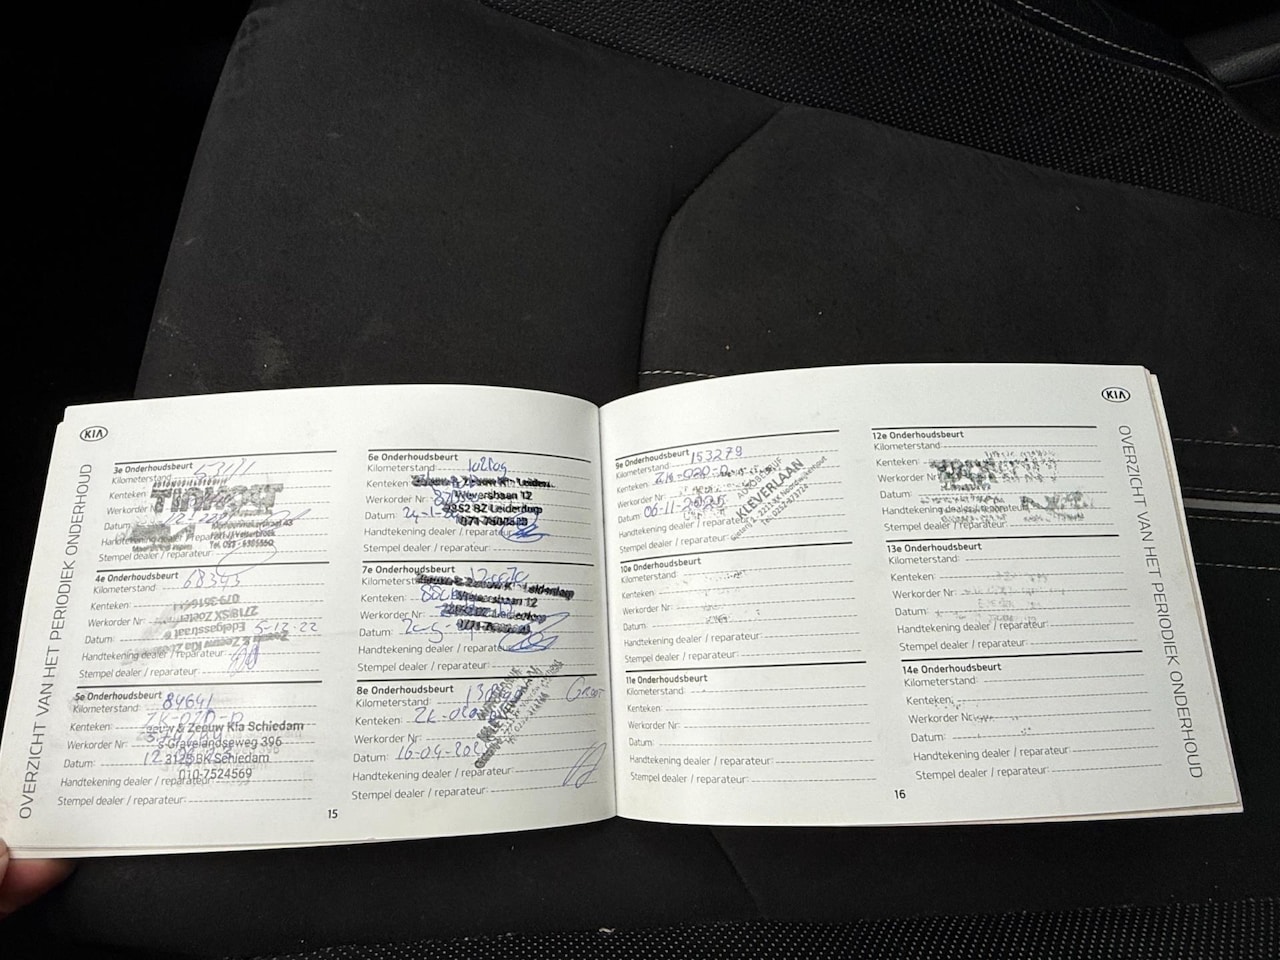 KIA
OVERZICHT VAN HET PERIODIEK ONDERHOUD
3e Onderhoudsbeurt
Kilometerstand 53111
Kenteken
Werkorder Nr
Datum
Handtekening dealer / reparateur
Stempel dealer / reparateur:
4e Onderhoudsbeurt
Kilometerstand: 68343
Kenteken:
Werkorder Nr:
Datum: 5-12-22
Handtekening dealer / reparateur:
Stempel dealer / reparateur:
079-3616411
2718SK Zoetermeer
Edelgasstraat
Zeeuw & Zeeuw Kia
5e Onderhoudsbeurt
Kilometerstand: 84641
Kenteken: ZK-020-D
Werkorder Nr:
Datum:
Handtekening dealer / reparateur:
Stempel dealer / reparateur:
Zeeuw & Zeeuw Kia Schiedam
's-Gravelandseweg 396
3125BK Schiedam
010-7524569
15
6e Onderhoudsbeurt
Kilometerstand 102109
Kenteken:
Werkorder Nr:
Datum:
Handtekening dealer / reparateur
Stempel dealer / reparateur:
Weversbaan 12
2352 BZ Leiderdorp
7e Onderhoudsbeurt
Kilometerstand
Kenteken:
Werkorder Nr:
Datum:
Handtekening dealer / reparateur:
Stempel dealer / reparateur:
Weversbaan 12
8e Onderhoudsbeurt
Kilometerstand:
Kenteken: ZK-020-D
Werkorder Nr:
Datum:
Handtekening dealer / reparateur:
Stempel dealer / reparateur:
GROOT
9e Onderhoudsbeurt
Kilometerstand 153279
Kenteken: ZK-020-D
Werkorder Nr:
Datum: 06-11-2025
Handtekening dealer / reparateur:
Stempel dealer / reparateur:
AUTOBEDRIJF
KLEVERLAAN
10e Onderhoudsbeurt
Kilometerstand:
Kenteken:
Werkorder Nr:
Datum:
Handtekening dealer / reparateur:
Stempel dealer / reparateur:
11e Onderhoudsbeurt
Kilometerstand
Kenteken:
Werkorder Nr:
Datum:
Handtekening dealer / reparateur:
Stempel dealer / reparateur:
16
12e Onderhoudsbeurt
Kilometerstand:
Kenteken:
Werkorder Nr:
Datum:
Handtekening dealer / reparateur:
Stempel dealer / reparateur:
13e Onderhoudsbeurt
Kilometerstand:
Kenteken:
Werkorder Nr:
Datum:
Handtekening dealer / reparateur:
Stempel dealer / reparateur:
14e Onderhoudsbeurt
Kilometerstand:
Kenteken:
Werkorder Nr:
Datum:
Handtekening dealer / reparateur:
Stempel dealer / reparateur:
KIA
OVERZICHT VAN HET PERIODIEK ONDERHOUD